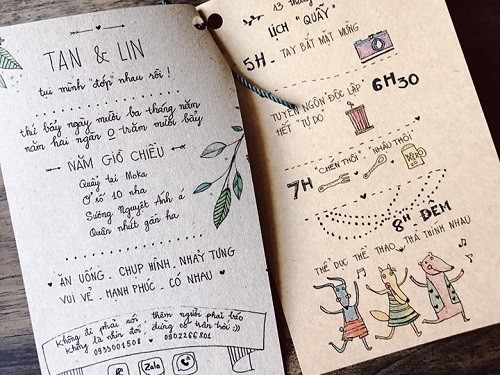 TAN & LIN
tụi mình "đớp" nhau rồi !
thứ bảy ngày mười ba tháng năm
năm hai ngàn 0 trăm mười bảy
NĂM GIỜ CHIỀU
Quẩy tại Moka
Ở số 10 nha
Sương Nguyệt Ánh á
Quận nhứt gần hà
ĂN UỐNG . CHỤP HÌNH . NHẢY TƯNG
VUI VẺ . HẠNH PHÚC . CÓ NHAU
Không đi phải nói, thêm người phải báo
Không là nhịn đói, đừng có trăn trối :))
0933001508 ♥ 0902266801
Zalo
13 tháng
LỊCH "QUẨY"
5H - TAY BẮT MẶT MỪNG
TUYÊN NGÔN ĐỘC LẬP 6H30
HẾT "TỰ DO"
7H CHÉN THÔI NHẬU THÔI
BEER
8H ĐÊM
THỂ DỤC THỂ THAO THẢ THÍNH NHAU